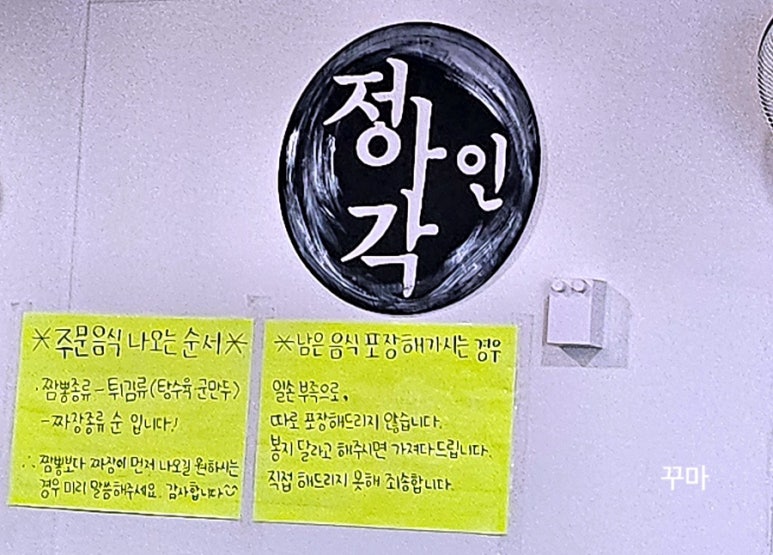 정아인각
*주문음식 나오는 순서*
· 짬뽕종류 - 튀김류(탕수육 군만두)
- 짜장종류 순 입니다!
∴ 짬뽕보다 짜장이 먼저 나오길 원하시는
경우 미리 말씀해주세요. 감사합니다
*남은 음식 포장해가시는 경우
일손 부족으로,
따로 포장해드리지 않습니다.
봉지 달라고 해주시면 가져다드립니다.
직접 해드리지 못해 죄송합니다.
꾸마